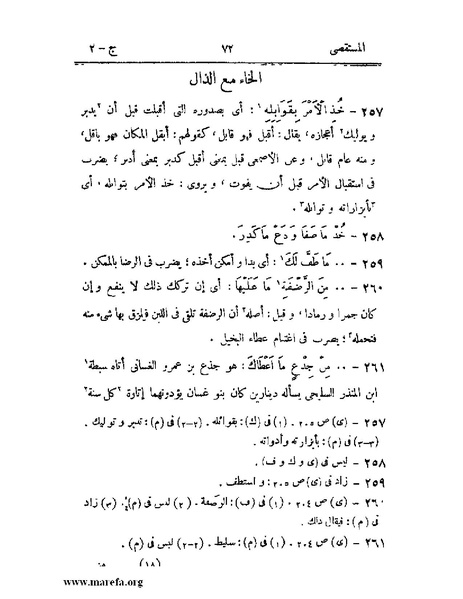 المستقصى ٧٢ ج - ٢
الخاء مع الذال
٢٥٧ - خُذِ الْأَمْرَ بِقَوَابِلِهِ¹: أى بصدوره التى أقبلت قبل أن ²يدبر
و يوليك² أعجازه، يقال: أقبل فهو قابل، كقولهم: أبقل المكان فهو باقل،
و منه عام قابل. و عن الأصمعى قبل بمعنى أقبل كدبر بمعنى أدبر؛ يضرب
فى استقبال الأمر قبل أن يفوت، و يروى: خذ الأمر بتوابله، أى
³بأبزاراته و توابله³.
٢٥٨ - خُذْ مَا صَفَا وَ دَعْ مَا كَدِرَ.
٢٥٩ - .. مَا طَفَّ لَكَ¹: أى بدا و أمكن أخذه؛ يضرب فى الرضا بالممكن.
٢٦٠ - .. مِنَ الرَّضْفَةِ¹ مَا عَلَيْهَا: أى إن تركك ذلك لا ينفع و إن
كان جمرا و رمادا، و قيل: أصله³ أن الرضفة تلقى فى اللبن فلزق بها شىء منه
فتحمله³؛ يضرب فى اغتنام عطاء البخيل.
٢٦١ - .. مِنْ جِذْعٍ مَا أَعْطَاكَ: هو جذع بن عمرو الغسانى أتاه سبطة¹
ابن المنذر السليحى يسأله دينارين كان بنو غسان يؤدونهما إتاوة ²كل سنة²
٢٥٧ - (ى) ص ٢٠٥. (١) فى (ك): بقوائله. (٢-٢) فى (م): تدبر و توليك.
(٣-٣) فى (م): بأبزارته وأدواته.
٢٥٨ - ليس فى (ى و ك و ف).
٢٥٩ - زاد فى (ى) ص ٢٠٥: و استطف.
٢٦٠ - (ى) ص ٢٠٤. (١) فى (ف): الرصفة. (٢) ليس فى (م). (٣) زاد
فى (م): فيقال ذلك.
٢٦١ - (ى) ص ٢٠٤. (١) فى (م): سليط. (٢-٢) ليس فى (م).
(١٨)
www.marefa.org